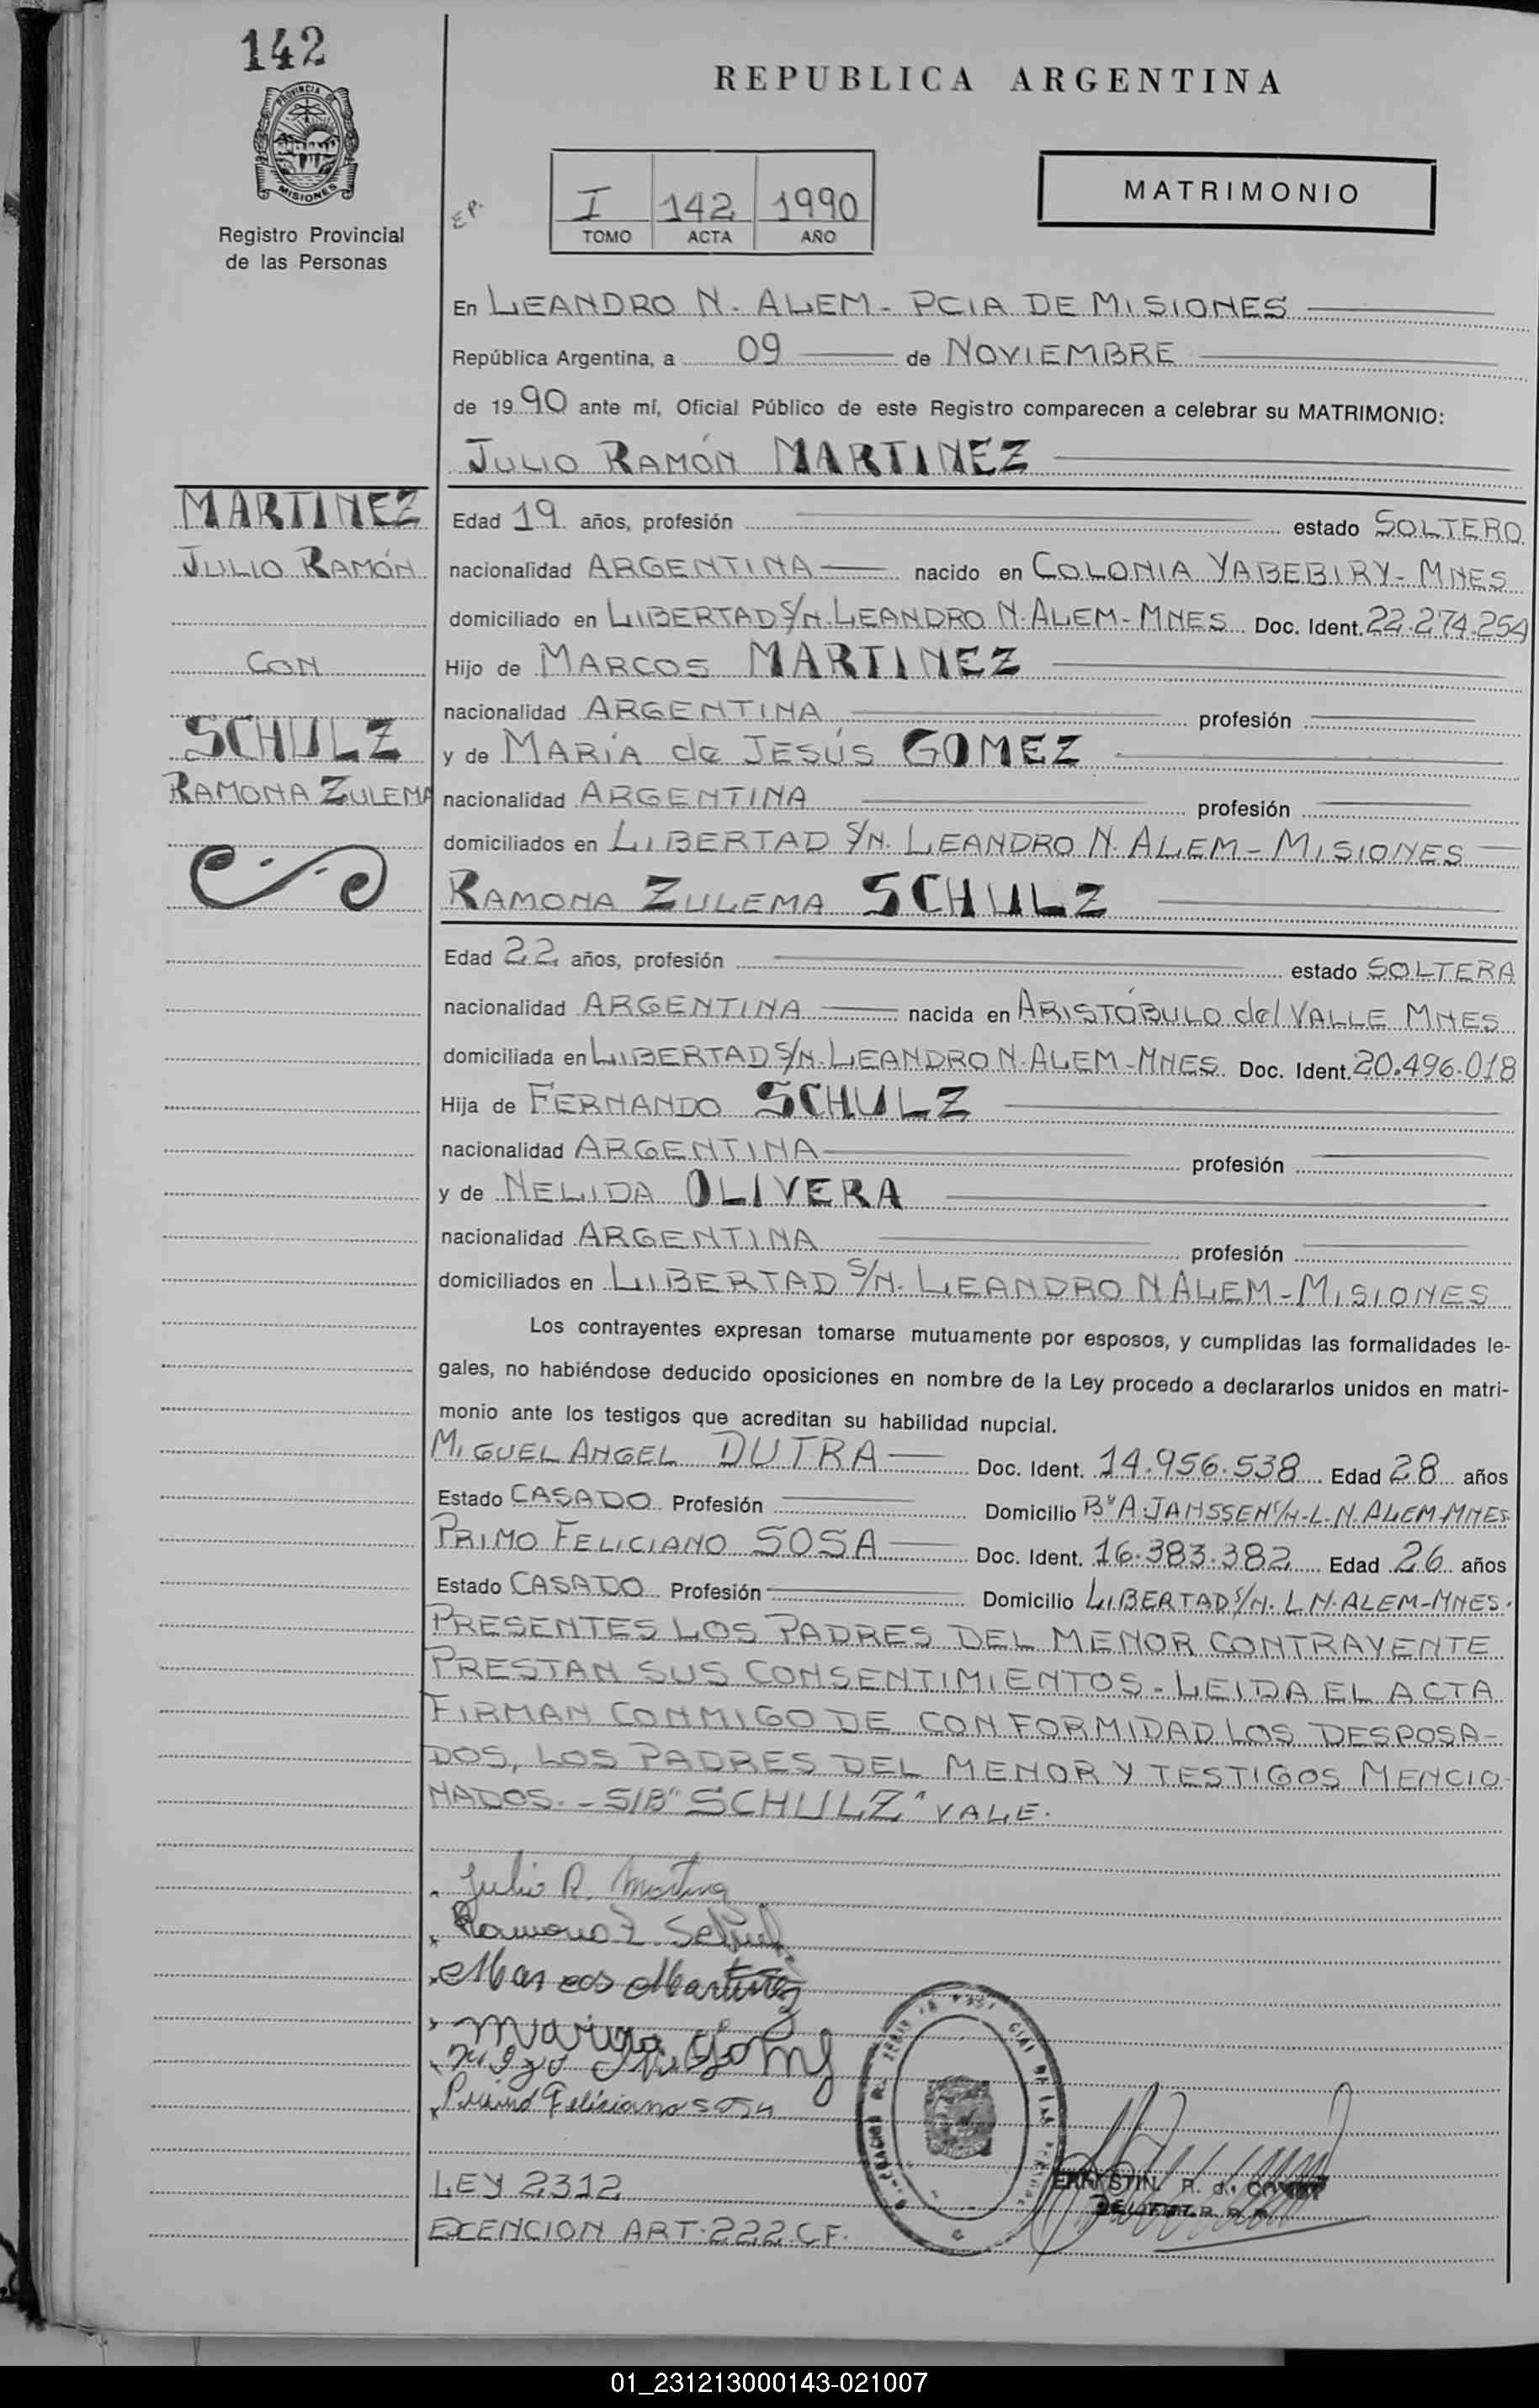 142
PROVINCIA DE
MISIONES
Registro Provincial
de las Personas
REPUBLICA ARGENTINA
E.P.
I 142 1990
TOMO ACTA AÑO
MATRIMONIO
En LEANDRO N. ALEM - PCIA DE MISIONES
República Argentina, a 09 de NOVIEMBRE
de 1990 ante mí, Oficial Público de este Registro comparecen a celebrar su MATRIMONIO:
JULIO RAMÓN MARTINEZ
MARTINEZ
JULIO RAMÓN
CON
SCHULZ
RAMONA ZULEMA
Edad 19 años, profesión estado SOLTERO
nacionalidad ARGENTINA nacido en COLONIA YABEBIRY - MNES
domiciliado en LIBERTAD S/N. LEANDRO N. ALEM - MNES Doc. Ident. 22.274.254
Hijo de MARCOS MARTINEZ
nacionalidad ARGENTINA profesión
y de MARÍA de JESÚS GOMEZ
nacionalidad ARGENTINA profesión
domiciliados en LIBERTAD S/N. LEANDRO N. ALEM - MISIONES
RAMONA ZULEMA SCHULZ
Edad 22 años, profesión estado SOLTERA
nacionalidad ARGENTINA nacida en ARISTÓBULO del VALLE MNES
domiciliada en LIBERTAD S/N. LEANDRO N. ALEM - MNES. Doc. Ident. 20.496.018
Hija de FERNANDO SCHULZ
nacionalidad ARGENTINA profesión
y de NELIDA OLIVERA
nacionalidad ARGENTINA profesión
domiciliados en LIBERTAD S/N. LEANDRO N ALEM - MISIONES
Los contrayentes expresan tomarse mutuamente por esposos, y cumplidas las formalidades le-
gales, no habiéndose deducido oposiciones en nombre de la Ley procedo a declararlos unidos en matri-
monio ante los testigos que acreditan su habilidad nupcial.
MIGUEL ANGEL DUTRA Doc. Ident. 14.956.538 Edad 28 años
Estado CASADO Profesión Domicilio Bº A. JANSSEN S/N - L. N. ALEM - MNES
PRIMO FELICIANO SOSA Doc. Ident. 16.383.382 Edad 26 años
Estado CASADO Profesión Domicilio LIBERTAD S/N. L N. ALEM - MNES.
PRESENTES LOS PADRES DEL MENOR CONTRAYENTE
PRESTAN SUS CONSENTIMIENTOS. LEIDA EL ACTA
FIRMAN CONMIGO DE CONFORMIDAD LOS DESPOSA-
DOS, LOS PADRES DEL MENOR Y TESTIGOS MENCIO-
NADOS. - S/B "SCHULZ" VALE.
Julio R. Martinez
Ramona Z. Schulz
Marcos Martinez
Primo Feliciano Sosa
LEY 2312
EXENCION ART. 222 C.F.
01_231213000143-021007